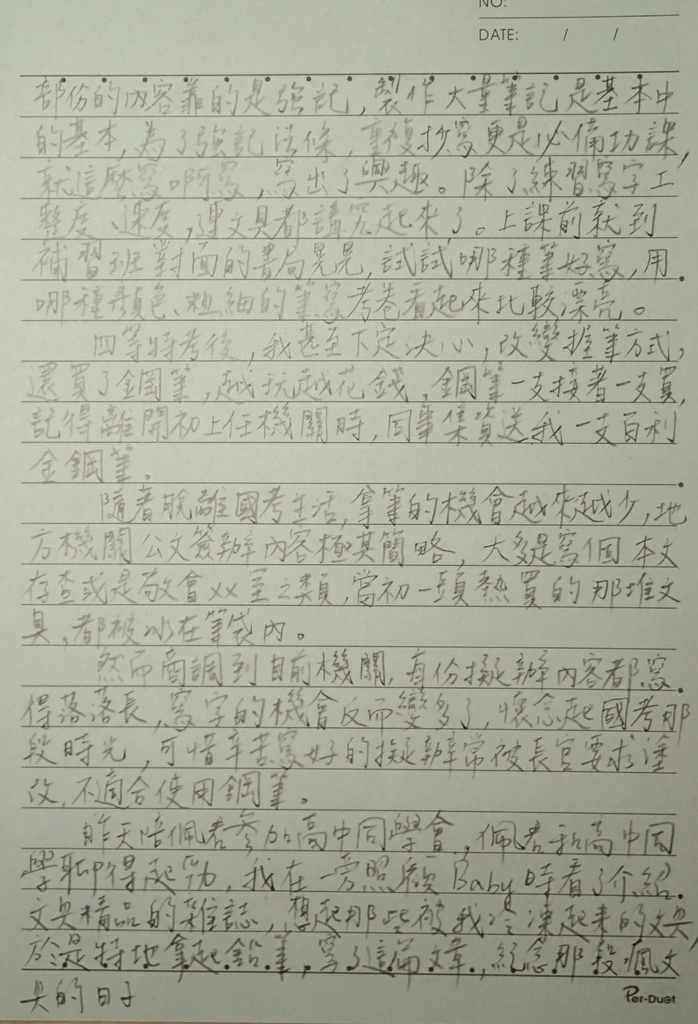 NO:
DATE: / /
部份的內容靠的是強記,製作大量筆記是基本中
的基本,為了強記法條,重複抄寫更是必備功課,
就這麼寫啊寫,寫出了興趣。除了練習寫字工
整度、速度,連文具都講究起來了。上課前就到
補習班對面的書局晃晃,試試哪種筆好寫,用
哪種顏色、粗細的筆寫考卷看起來比較漂亮。
四等特考後,我甚至下定決心,改變握筆方式,
還買了鋼筆,越玩越花錢,鋼筆一支接著一支買,
記得離開初上任機關時,同事集資送我一支百利
金鋼筆。
隨著脫離國考生活,拿筆的機會越來越少,地
方機關公文簽辦內容極其簡略,大多是寫個本文
存查或是敬會XX室之類,當初一頭熱買的那堆文
具,都被冰在筆袋內。
然而商調到目前機關,每份擬辦內容都寫
得落落長,寫字的機會反而變多了,懷念起國考那
段時光,可惜辛苦寫好的擬辦常被長官要求塗
改,不適合使用鋼筆。
昨天陪佩君參加高中同學會,佩君和高中同
學聊得起勁,我在一旁照顧Baby時看了介紹
文具精品的雜誌,想起那些被我冷凍起來的文具,
於是特地拿起鉛筆,寫了這篇文章,紀念那段瘋文
具的日子
Per-Dust